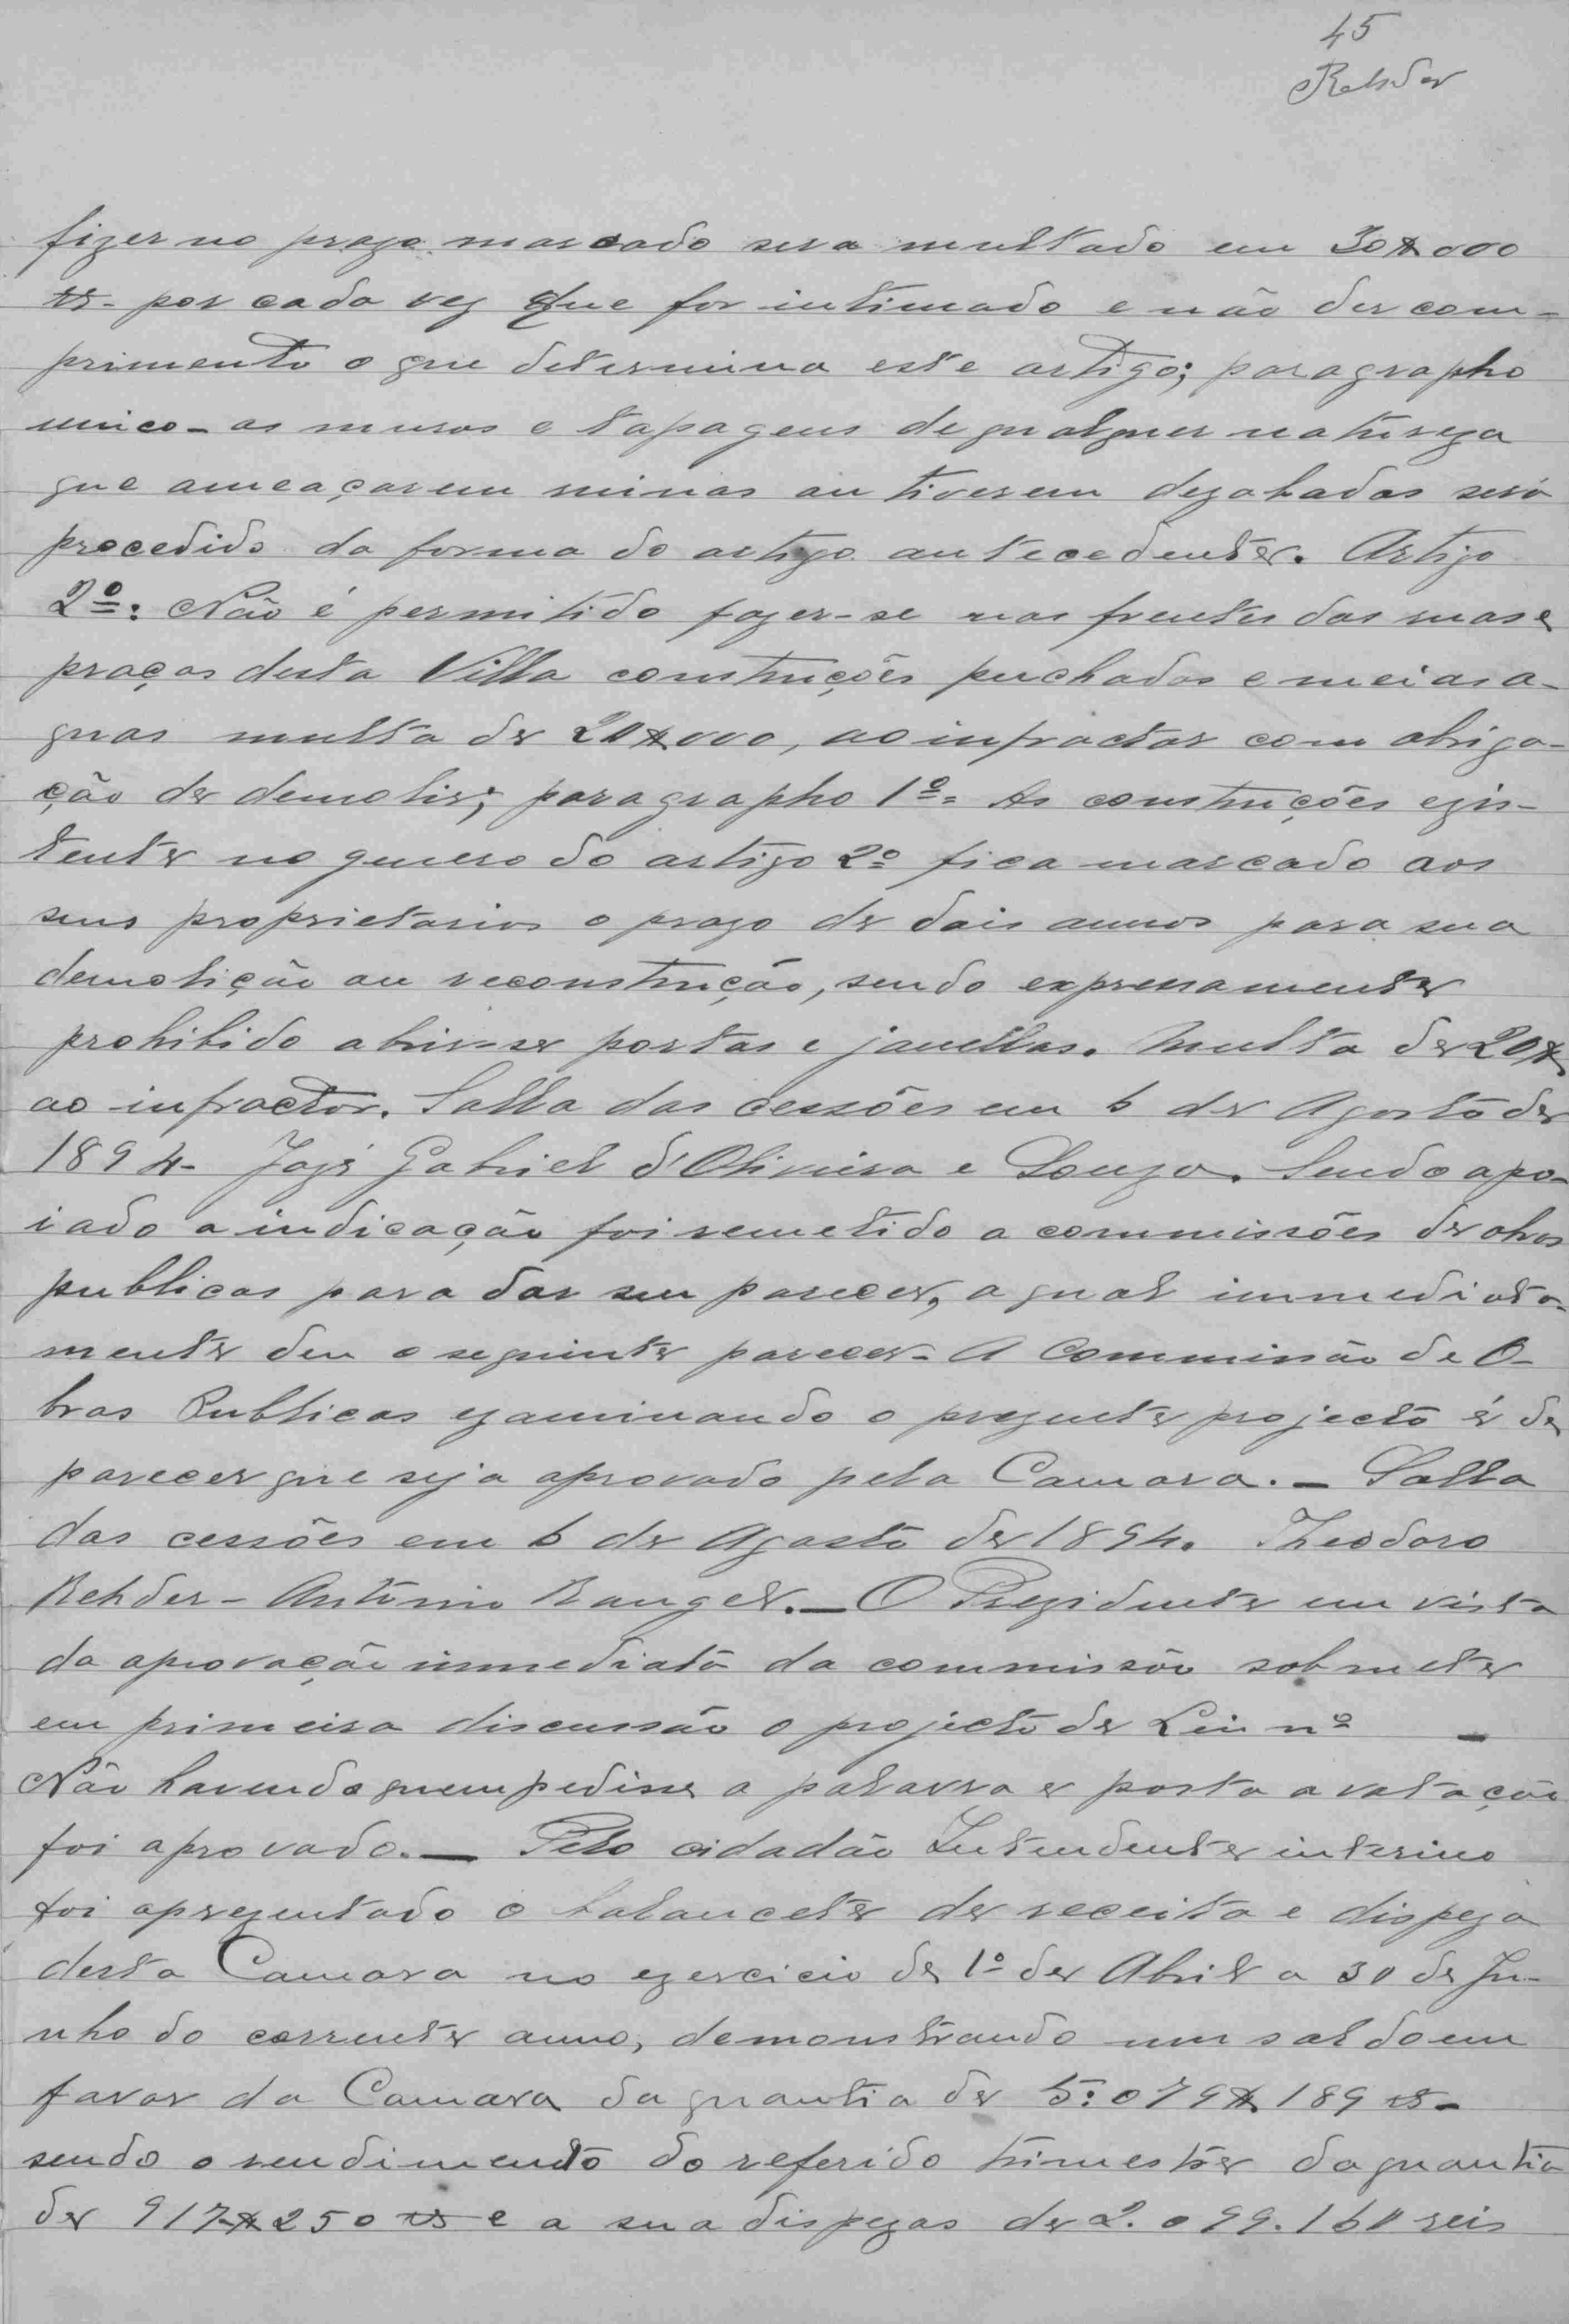 45
Rehder
fizer no prazo marcado sera multado em 30$000
rs. por cada vez que for intimado e não der com-
primento o que determina este artigo; paragrapho
unico - as muros e tapagens de qualquer natureza
que ameaçarem ruinas ou tiverem dezabadas será
procedido da forma do artigo antecedente. Artigo
2º: Não é permitido fazer-se nas frentes das ruas e
praças desta Villa construções puchadas e meias a-
guas multa de 20$000, ao infractor com obriga-
ção de demolir; paragrapho 1º= As construções ezis-
tente no genero do artigo 2º fica marcado aos
seus proprietarios o prazo de dois annos para sua
demolição ou reconstrucção, sendo expressamente
prohibido abrir-se portas e janellas. Multa de 20$
ao infractor. Salla das cessões em 6 de Agosto de
1894- Jozé Gabriel d'Oliveira e Souza. Sendo apo-
iado a indicação foi remetido a commissões de obras
publicas para dar seu parecer, a qual immediata-
mente deu o seguinte parecer- A Commissão de O-
bras Publicas ezaminando o prezente projecto é de
parecer que seja aprovado pela Camara. - Salla
das cessões em 6 de Agosto de 1894. Theodoro
Rehder - Antonio Rangel. - O Prezidente em vista
da aprovação immediata da commissão sobmete
em primeira discussão o projecto de Lei nº -
Não havendo quem pedisse a palavra e posta a votação
foi aprovado. - Pelo cidadão Intendente interino
foi aprezentado o balancete de receita e dispeza
desta Camara no ezercicio de 1º de Abril a 30 de Ju-
nho do corrente anno, demonstrando um saldo em
favor da Camara da quantia de 5:079$189 rs-
sendo o rendimento do referido trimestre da quantia
de 917$250 rs e a sua dispezas de 2.099.160 reis